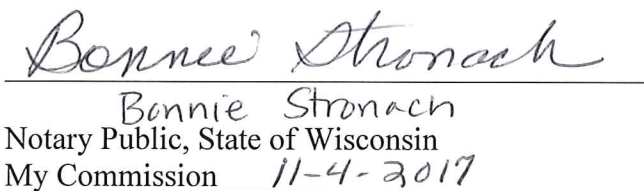 Bonnie Stronach
Bonnie Stronach
Notary Public, State of Wisconsin
My Commission 11-4-2017